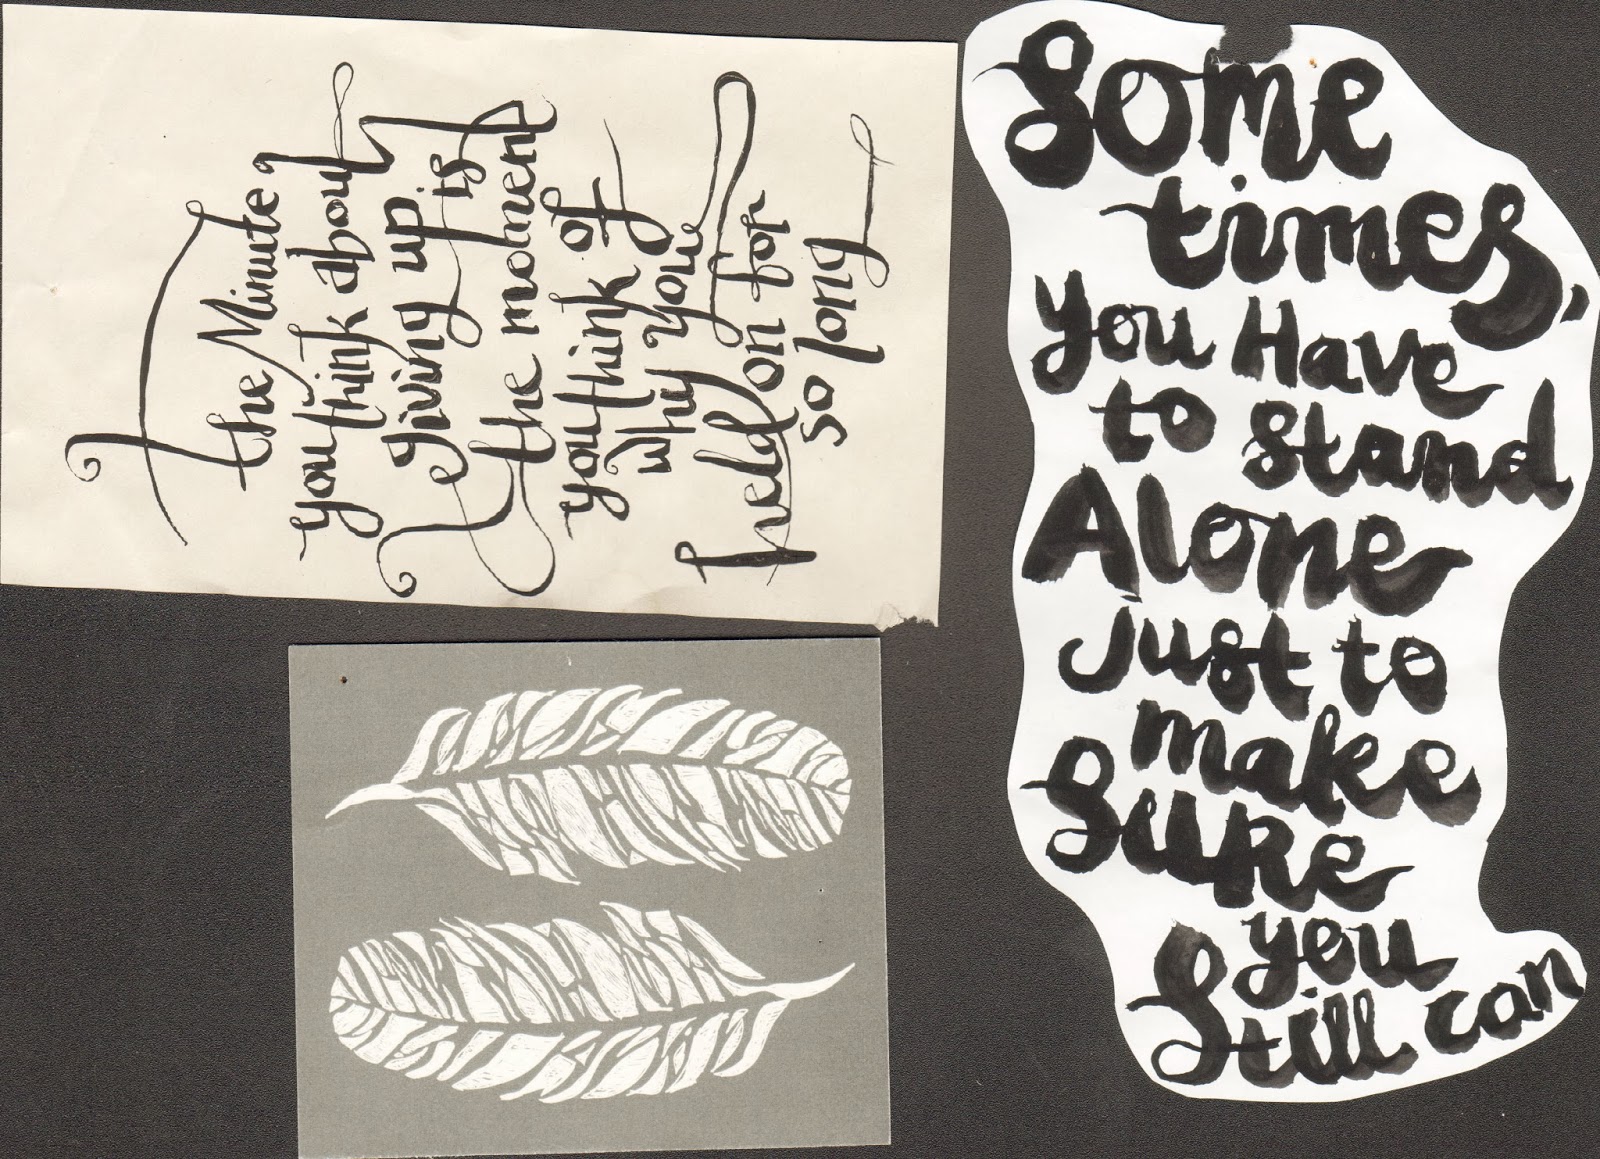 the Minute
you think about
giving up is
the moment
you think of
why you
held on for
so long
Some
times,
you Have
to stand
Alone
Just to
make
Sure
you
Still can